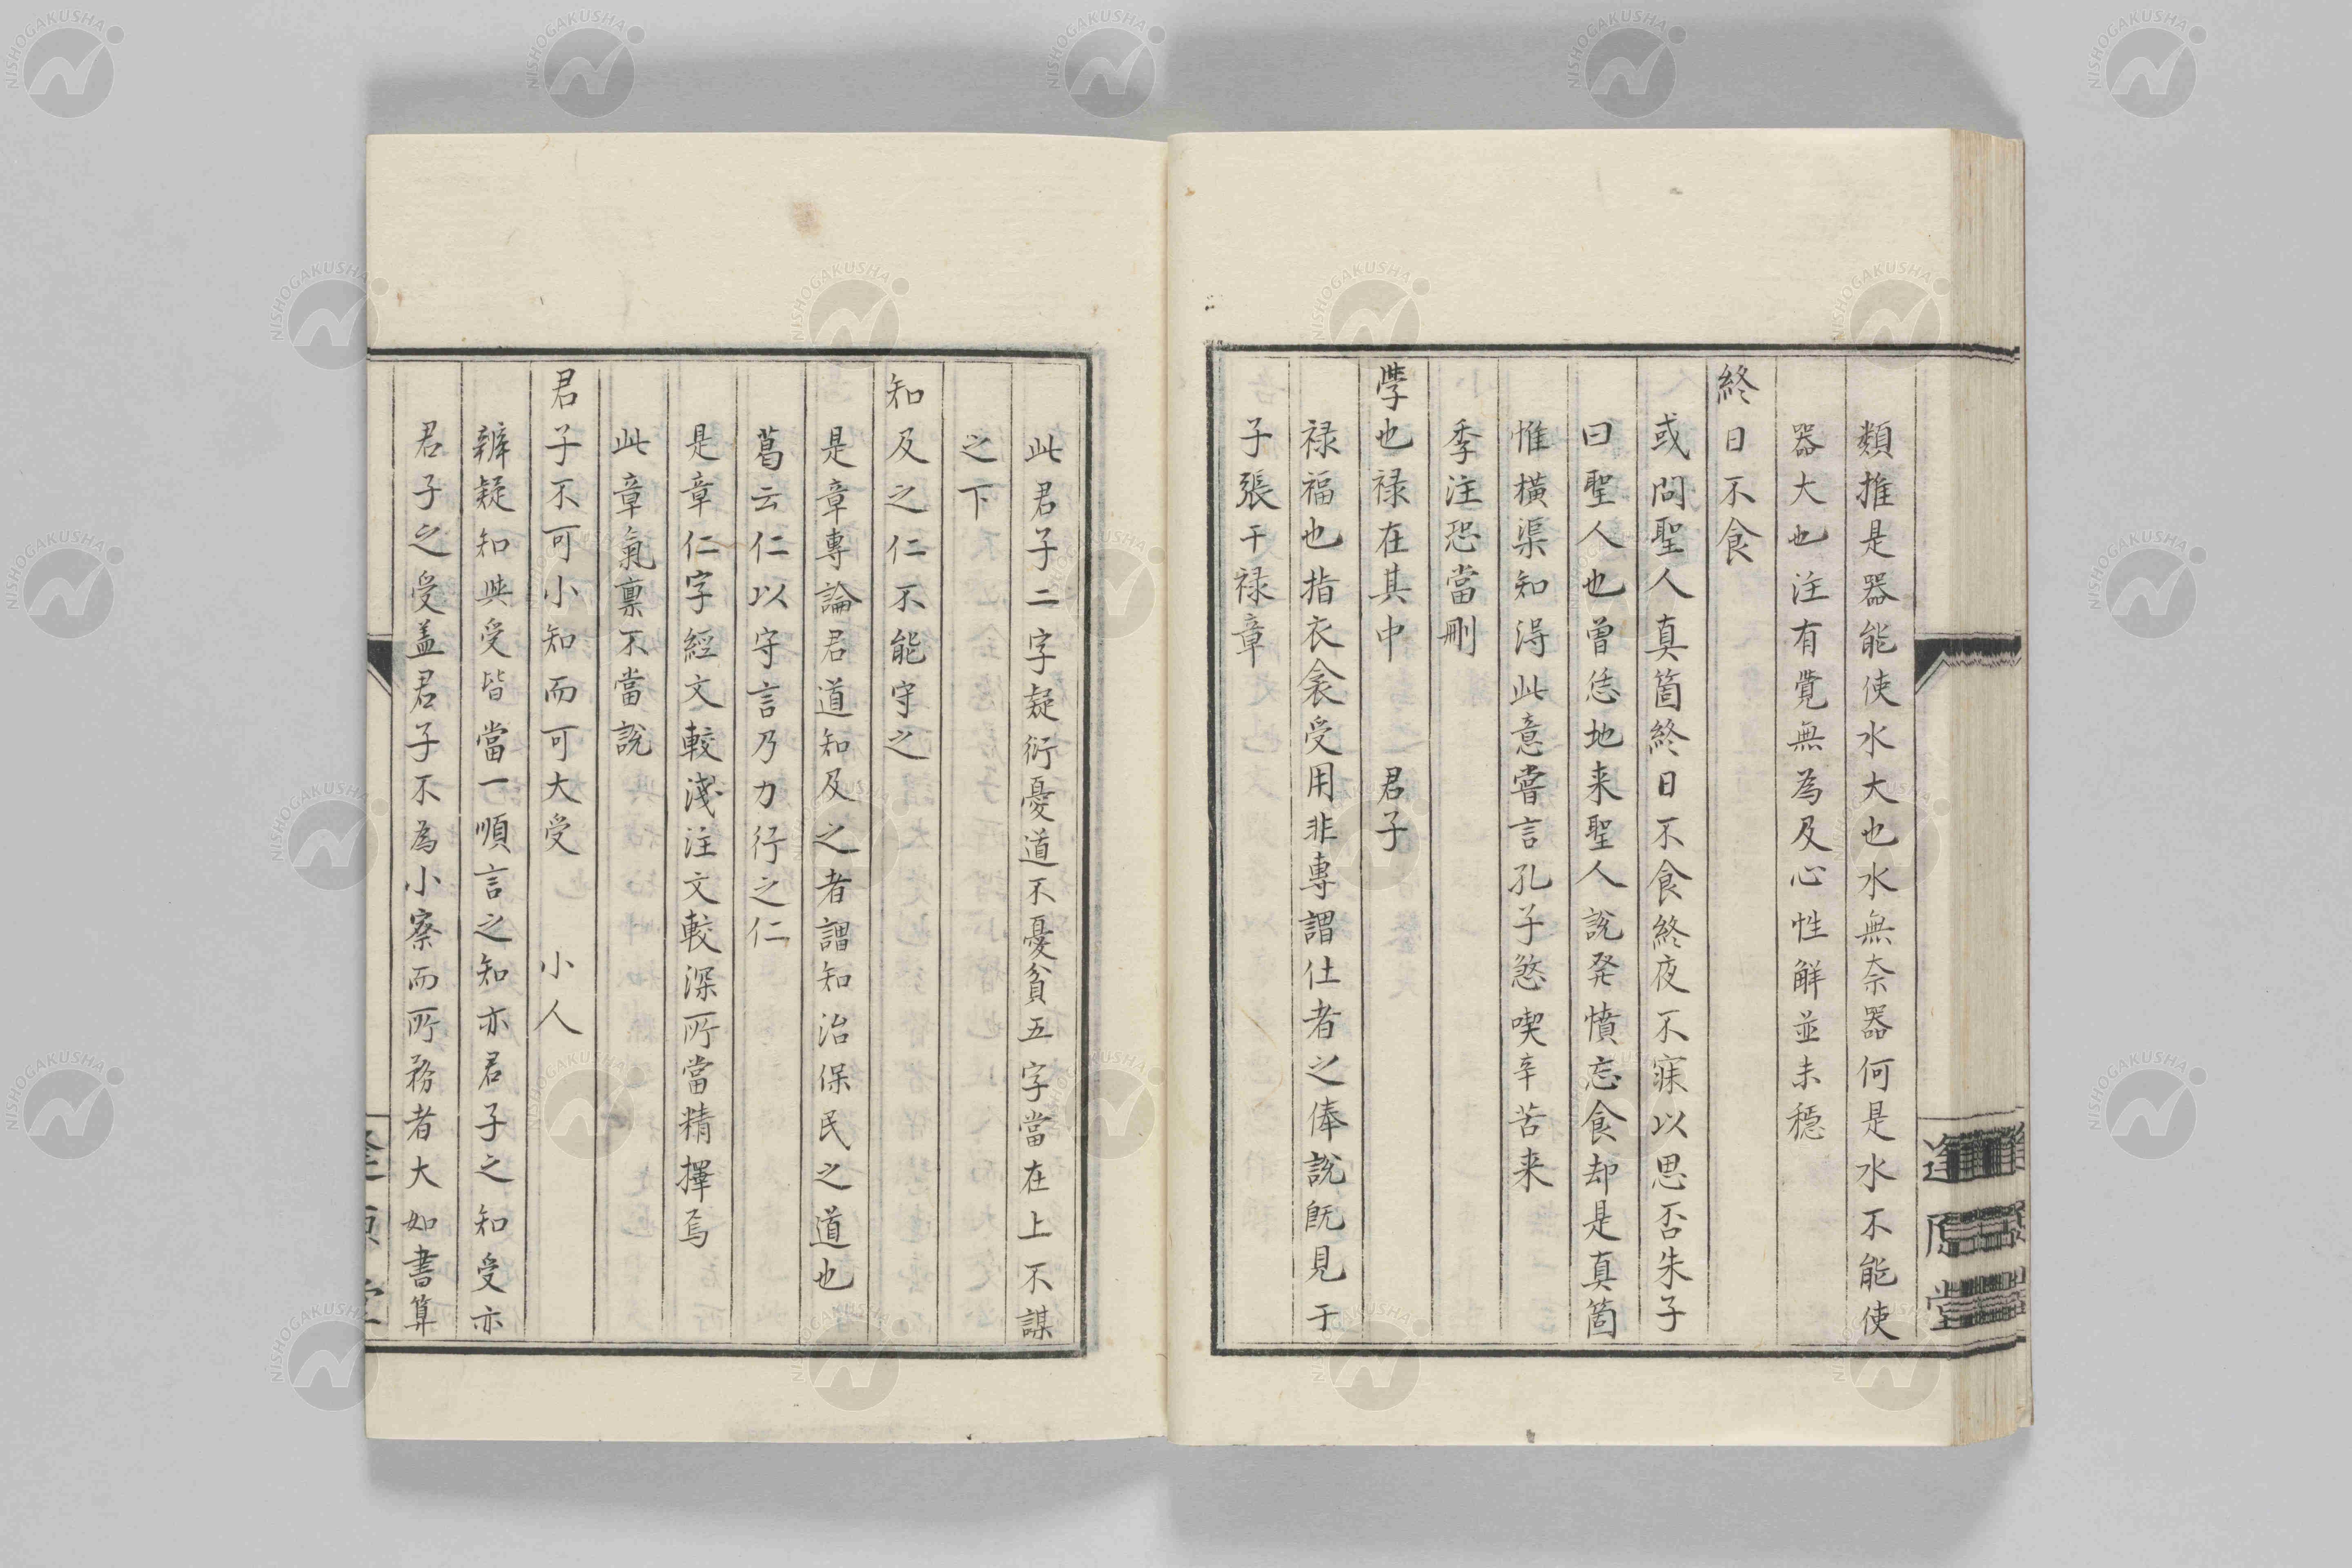 類推是器能使水大也水無奈器何是水不能使
器大也注有覺無為及心性解並未穩
終日不食
或問聖人真箇終日不食終夜不寐以思否朱子
曰聖人也曾恁地来聖人說発憤忘食却是真箇
惟橫渠知得此意嘗言孔子煞喫辛苦来
季注恐當刪
學也祿在其中　君子
祿福也指衣食受用非專謂仕者之俸說既見于
子張干祿章
逢原堂
此君子二字疑衍憂道不憂貧五字當在上不謀
之下
知及之仁不能守之
是章專論君道知及之者謂知治保民之道也
葛云仁以守言乃力行之仁
是章仁字經文較淺注文較深所當精擇焉
此章氣禀不當說
君子不可小知而可大受　小人
辨疑知與受皆當一順言之知亦君子之知受亦
君子之受盖君子不為小察而所務者大如書算
NISHOGAKUSHA